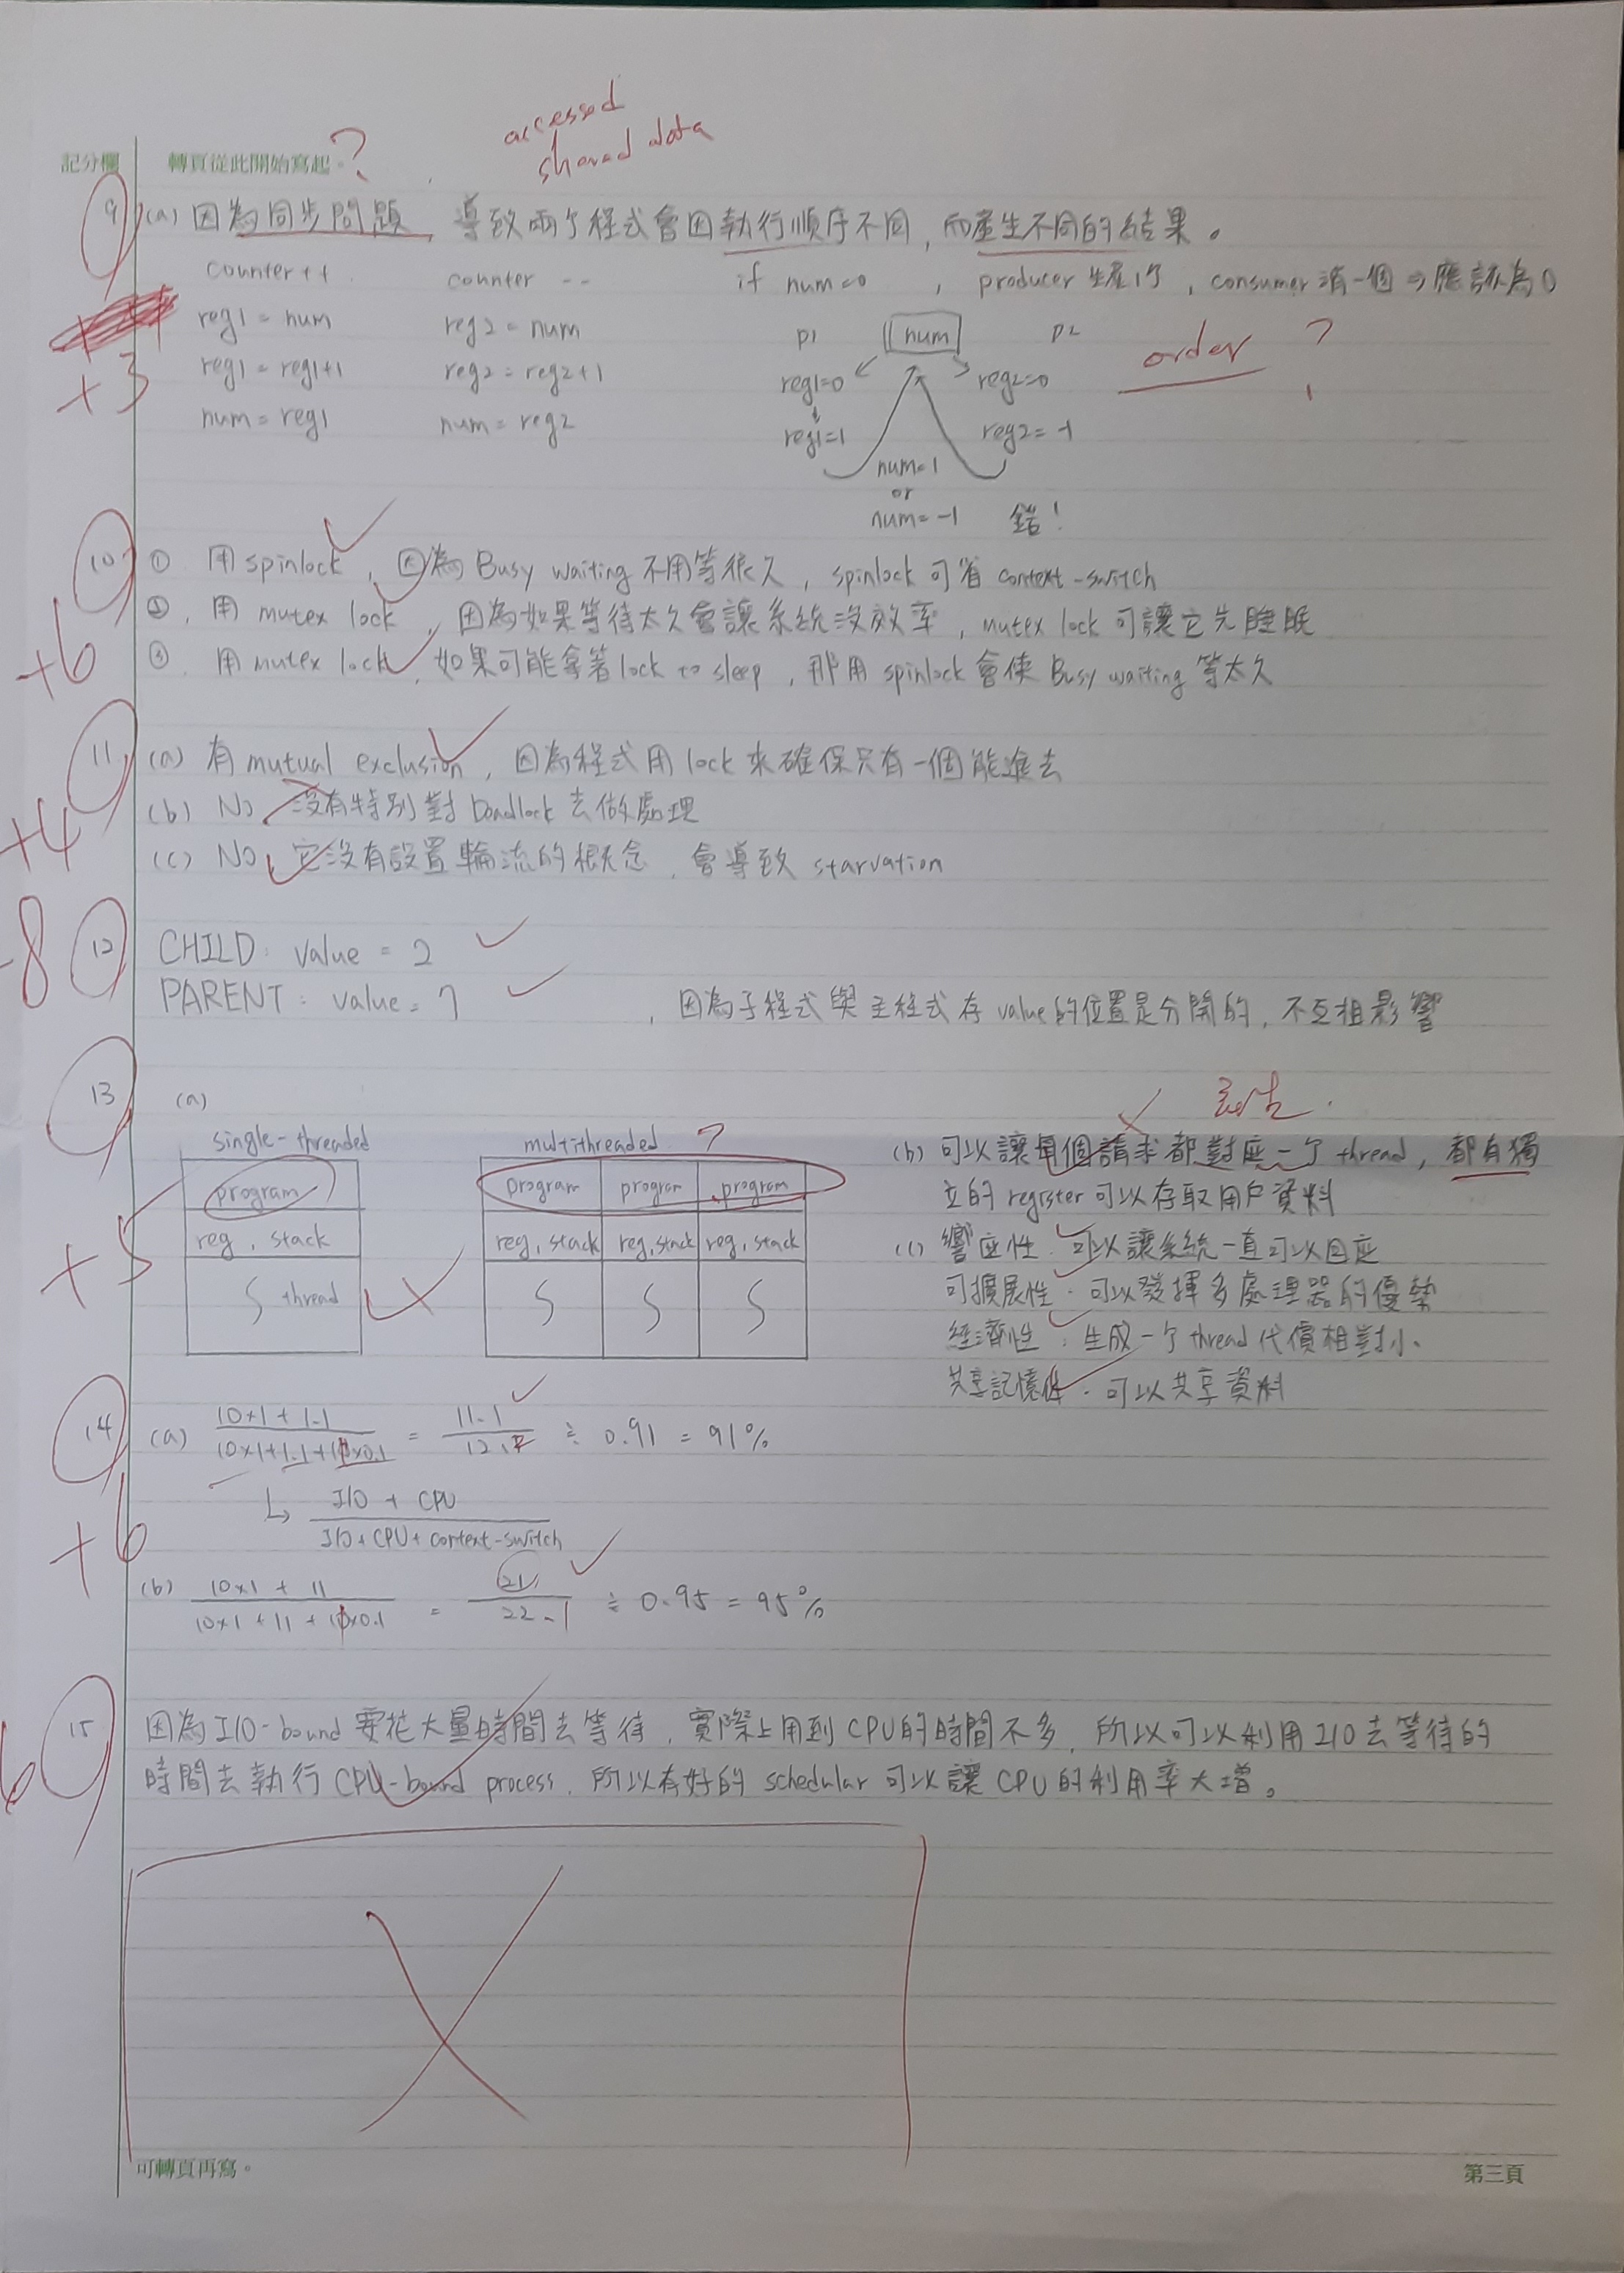 accessed
shared data
記分欄 轉頁從此開始寫起。?
9 (a) 因為同步問題,導致兩個程式會因執行順序不同,而產生不同的結果。
counter++ counter -- if num=0 , producer 生產1個, consumer 消一個 ⇒ 應該為0
reg1 = num reg2 = num p1 num p2 order ?
+3 reg1 = reg1+1 reg2 = reg2+1 reg1=0 reg2=0
num = reg1 num = reg2 reg1=1 reg2=-1
num=1
or
num=-1 錯!
10 ① 用 spinlock , 因為 Busy waiting 不用等很久, spinlock 可省 context-switch
②. 用 mutex lock , 因為如果等待太久會讓系統沒效率, mutex lock 可讓它先睡眠
+6 ③. 用 mutex lock, 如果可能拿著 lock to sleep, 那用 spinlock 會使 Busy waiting 等太久
11 (a) 有 mutual exclusion, 因為程式用 lock 來確保只有一個能進去
(b) No 沒有特別對 Deadlock 去做處理
+4 (c) No, 它沒有設置輪流的概念, 會導致 starvation
8 12 CHILD: value = 2
PARENT: value = 7 , 因為子程式與主程式存 value 的位置是分開的, 不互相影響
13 (a)
single-threaded multithreaded ?
program program program program
reg, stack reg, stack reg, stack reg, stack
thread
+5
(b) 可以讓每個請求都對應一個 thread, 都有獨
立的 register 可以存取用戶資料
(c) 響應性: 可以讓系統一直可以回應
可擴展性: 可以發揮多處理器的優勢
經濟性: 生成一個 thread 代價相對小
共享記憶體: 可以共享資料
14 (a) 10×1+1.1 / 10×1+1.1+11×0.1 = 11.1 / 12.2 ≒ 0.91 = 91%
↳ I/O + CPU / I/O + CPU + context-switch
+6
(b) 10×1 + 11 / 10×1 + 11 + 11×0.1 = 21 / 22.1 ≒ 0.95 = 95%
6 15 因為 I/O-bound 要花大量時間去等待, 實際上用到 CPU 的時間不多, 所以可以利用 I/O 去等待的
時間去執行 CPU-bound process, 所以有好的 schedular 可以讓 CPU 的利用率大增。
可轉頁再寫。 第三頁